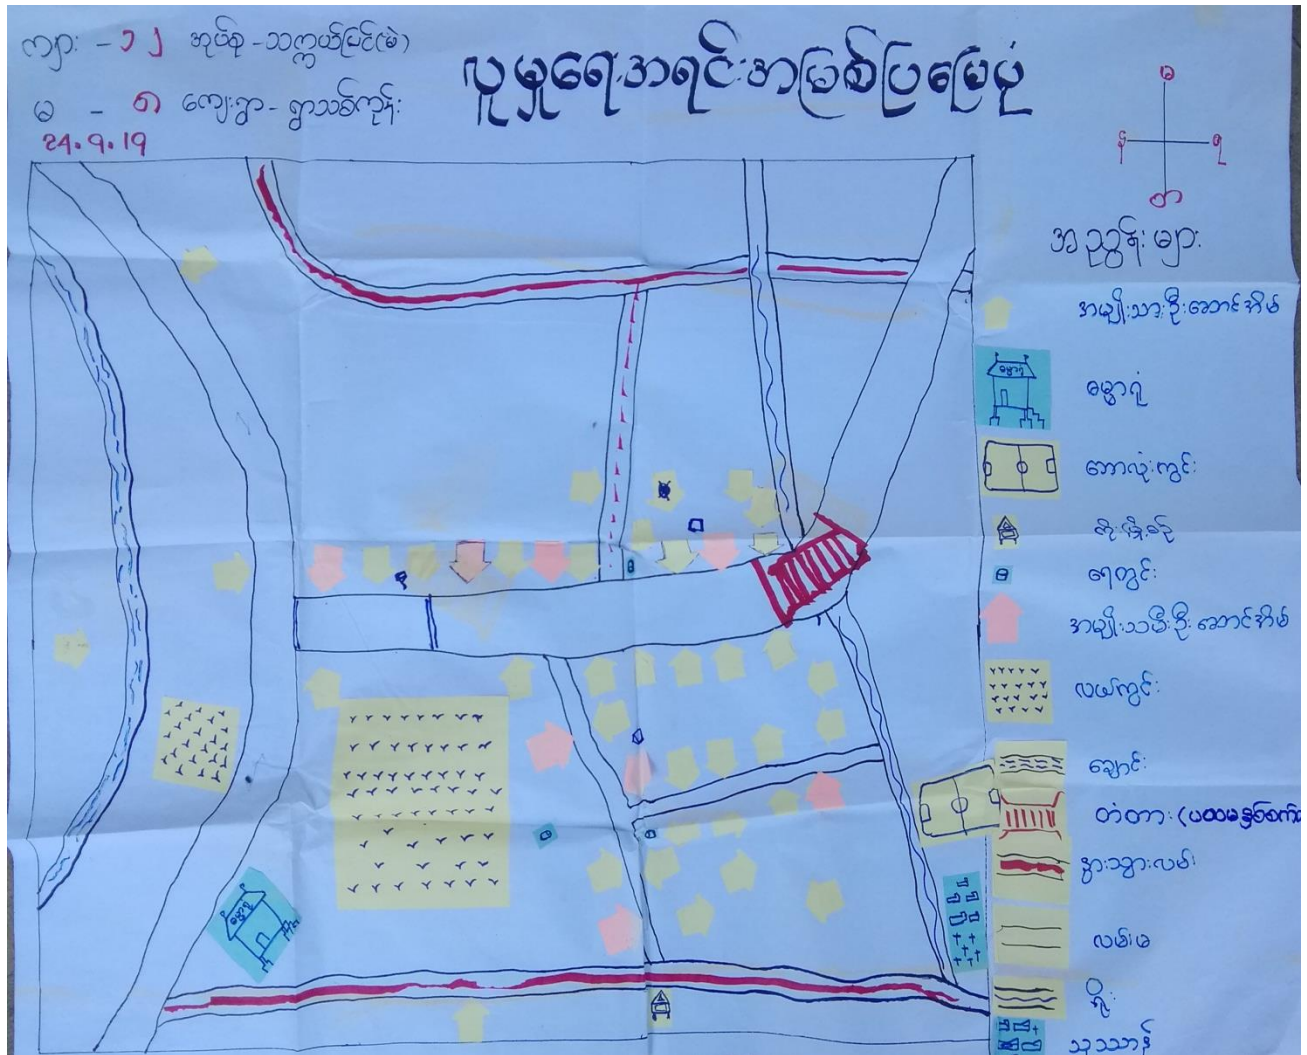 ကျား - ၁၂ အုပ်စု - သက္ကယ်ပြင်(မဲ)
မ - ၈ ကျေးရွာ - ရွာသစ်ကုန်း
24.9.19
လူမှုရေးအရင်းအမြစ်ပြမြေပုံ
မ
န
ရ
တ
အညွှန်းများ
အမျိုးသားဦးဆောင်အိမ်
ဓမ္မာရုံ
ဓမ္မာရုံ
ဘောလုံးကွင်း
ရေတွင်း
အမျိုးသမီးဦးဆောင်အိမ်
လယ်ကွင်း
ချောင်း
တံတား (ပထမနှစ်စက်
နွားသွားလမ်း
လမ်းမ
ရိုး
သုဿာန်